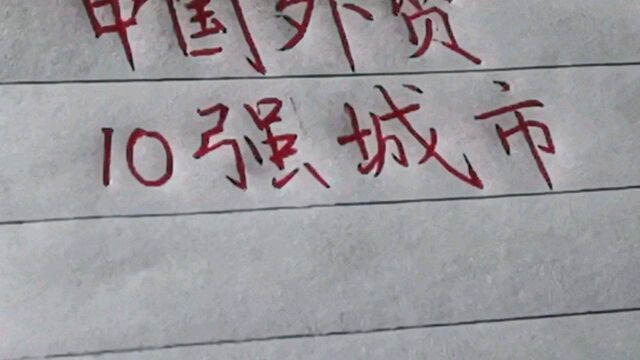 中国外贸
10强城市